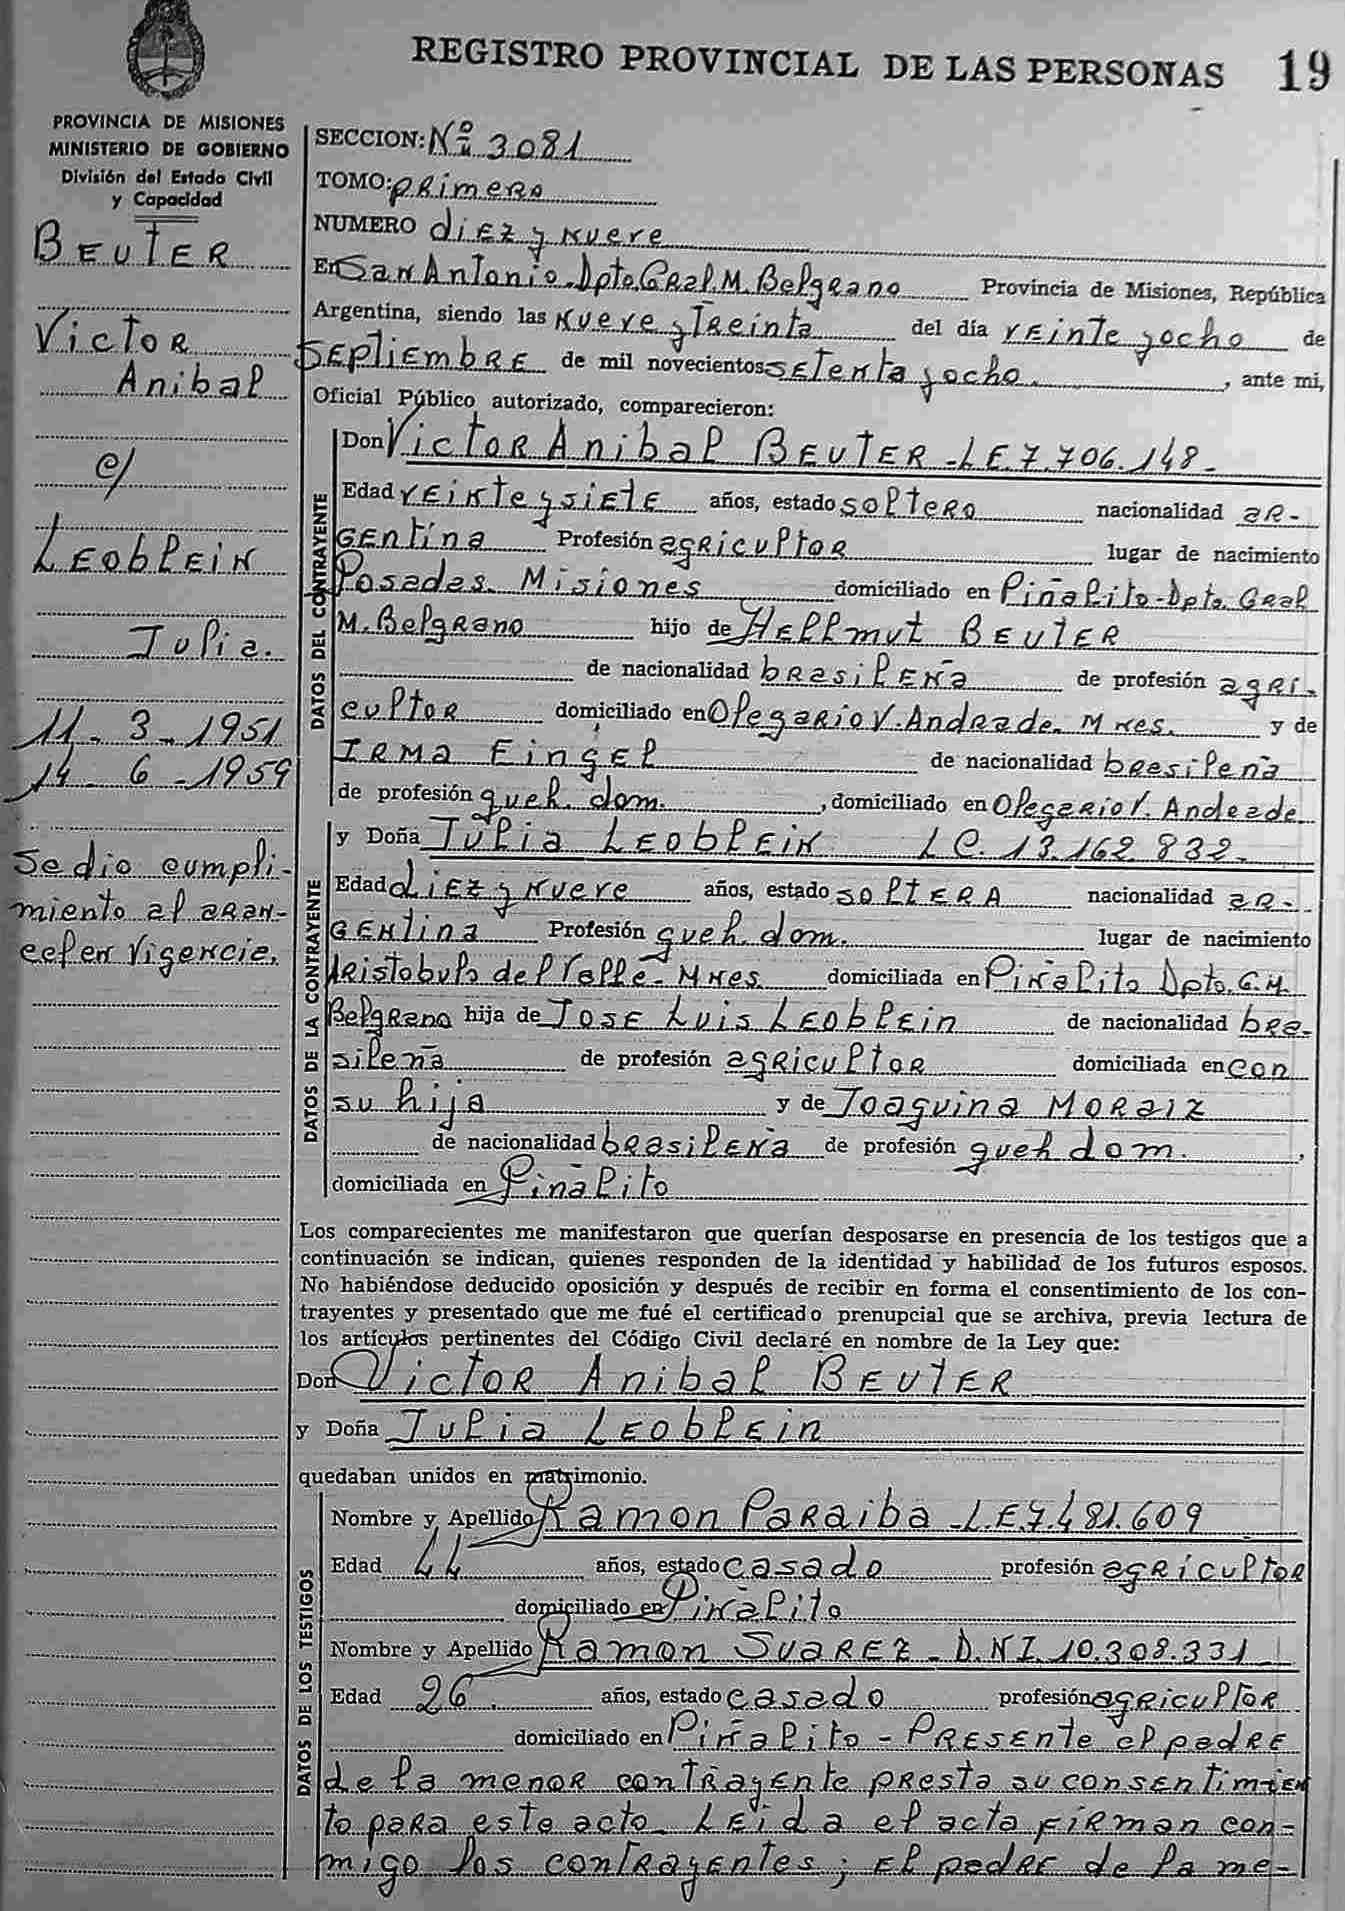 REGISTRO PROVINCIAL DE LAS PERSONAS 19
PROVINCIA DE MISIONES
MINISTERIO DE GOBIERNO
División del Estado Civil
y Capacidad
BEUTER
Victor
Anibal
c/
LEOBLEIN
Julia.
11-3-1951
14-6-1959
Se dio cumpli-
miento al aran-
cel en vigencia.
SECCION: Nº 3081
TOMO: primero
NUMERO diez y nueve
En San Antonio. Dpto. Gral. M. Belgrano Provincia de Misiones, República
Argentina, siendo las nueve y treinta del día veinte y ocho de
septiembre de mil novecientos setenta y ocho. , ante mi,
Oficial Público autorizado, comparecieron:
DATOS DEL CONTRAYENTE
Don Victor Anibal BEUTER - L.E. 7.706.148-
Edad veinte y siete años, estado soltero nacionalidad ar-
gentina Profesión agricultor lugar de nacimiento
Posadas. Misiones domiciliado en Piñalito-Dpto. Gral
M. Belgrano hijo de Hellmut BEUTER
de nacionalidad brasileña de profesión agri-
cultor domiciliado en Olegario V. Andrade. Mnes. y de
IRMA Eingel de nacionalidad brasileña
de profesión queh. dom. , domiciliado en Olegario V. Andrade
DATOS DE LA CONTRAYENTE
y Doña Julia LEOBLEIN L.C. 13.162.832-
Edad diez y nueve años, estado soltera nacionalidad ar-
gentina Profesión queh. dom. lugar de nacimiento
Aristobulo del Valle-Mnes. domiciliada en Piñalito Dpto. G. M.
Belgrano hija de Jose Luis LEOBLEIN de nacionalidad bra-
sileña de profesión agricultor domiciliada en con
su hija y de Joaquina MORAIZ
de nacionalidad brasileña de profesión queh dom. ,
domiciliada en Piñalito
Los comparecientes me manifestaron que querían desposarse en presencia de los testigos que a
continuación se indican, quienes responden de la identidad y habilidad de los futuros esposos.
No habiéndose deducido oposición y después de recibir en forma el consentimiento de los con-
trayentes y presentado que me fué el certificado prenupcial que se archiva, previa lectura de
los artículos pertinentes del Código Civil declaré en nombre de la Ley que:
Don Victor Anibal BEUTER
y Doña Julia LEOBLEIN
quedaban unidos en matrimonio.
DATOS DE LOS TESTIGOS
Nombre y Apellido Ramon Paraiba - L.E. 7.481.609
Edad 44 años, estado casado profesión agricultor
domiciliado en Piñalito
Nombre y Apellido Ramon SUAREZ - D.N.I. 10.308.331
Edad 26. años, estado casado profesión agricultor
domiciliado en Piñalito - Presente el padre
de la menor contrayente presta su consentimien
to para este acto. Leida el acta firman con-
migo los contrayentes; el padre de la me-